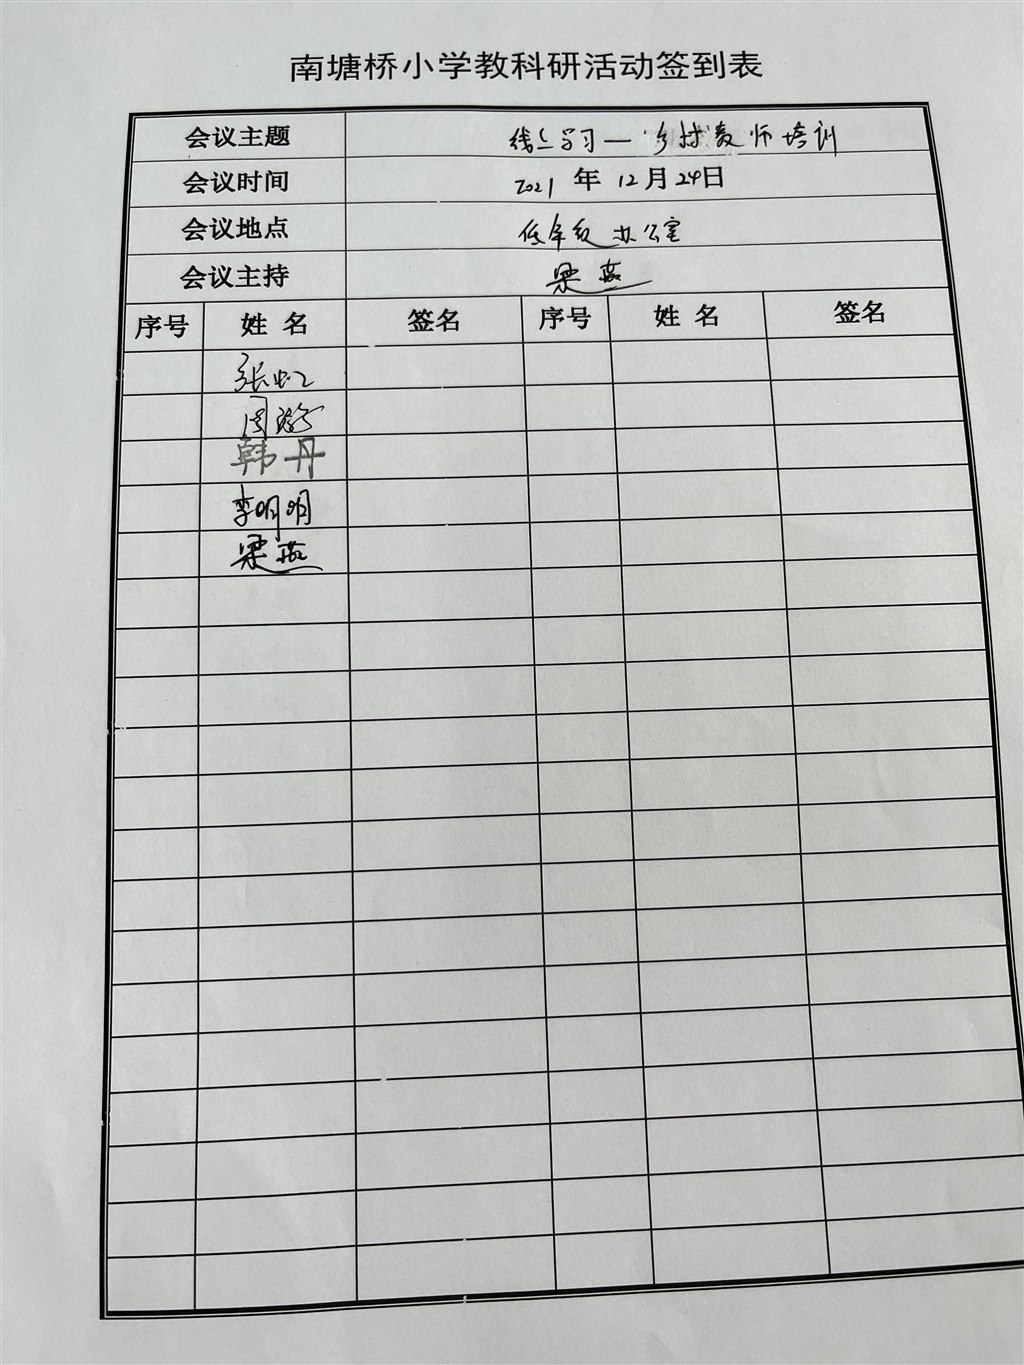 南塘桥小学教科研活动签到表
会议主题 线上学习—乡村教师培训
会议时间 2021 年 12月24日
会议地点 低年级办公室
会议主持 梁燕
序号 姓 名 签名 序号 姓 名 签名
张虹
周
韩丹
李明明
梁燕